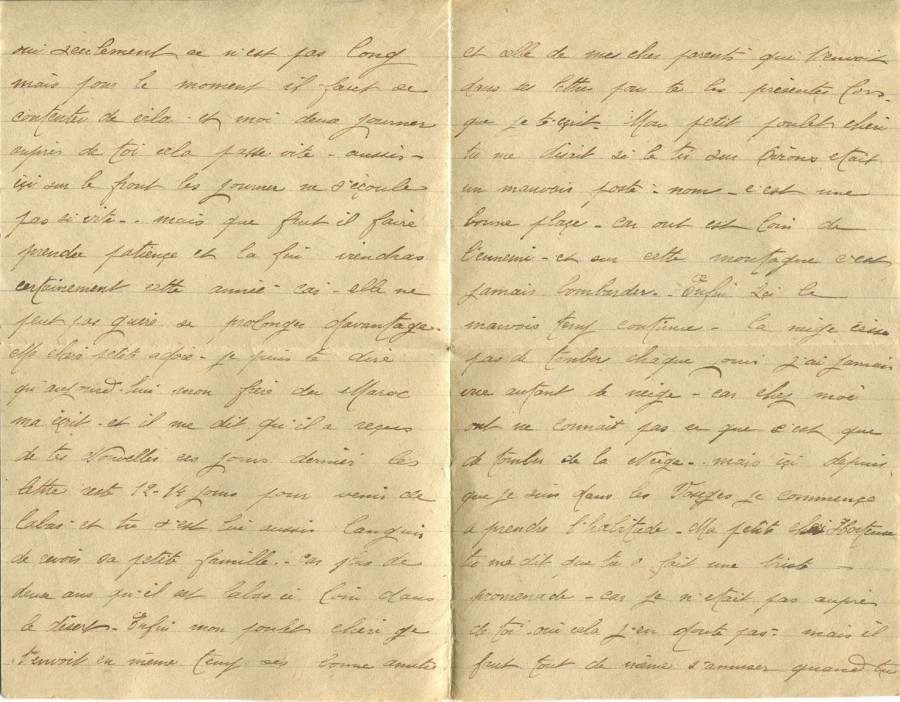 oui seulement ce n'est pas long
mais pour le moment il faut se
contenter de cela et moi deux journer
auprès de toi cela passe vite - aussi -
içi sur le front les journer ne s'éçoule
pas si vite - . mais que faut il faire
prendre patiençe et la fin viendras
certainement cette année - cai - elle ne
peut pas guère se prolonger d'avantage.
Ma chère petite adoré - je puis te dire
qu'aujourd'hui mon frère du Maroc
ma écrit - et il me dit qu'il a reçus
de tes Nouvelles ces jours dernier les
lettre reste 12-14 jours pour venir de
labas - et tu s'est lui aussi languis
de revoir sa petite famille. - pas de
deux ans qu'il est labas si loin dans
le désert - Enfin mon poulet chéri je
t'envoit en même temp ses bonne amitié
et celle de mes cher parents qui t'envoit
dans ses lettres pour te les présenter lors-
que je te écrit. Mon petit poulet chéri
tu me disait si le tir sur était
un mauvais poste - nom - c'est une
bonne plaçe - car ont est loin de
l'ennemi - et sur cette montagne c'est
jamais bombarder. - Enfin ici le
mauvois temp continue - la neige
pas de tomber chaque jours j'ai jamais
vue autant de neige - car chez moi
ont ne connait pas ce que s'est que
de tomber de la Neige - . mais içi depuis
que je suis dans les Vosges je commençe
a prendre l'habitude - Ma petite chéri Hortense
tu me dit que tu a fait une triste -
promenade - car je n'etait pas auprès
de toi oui cela j'en doute pas - mais il
faut tout de même s'amuser quand tu